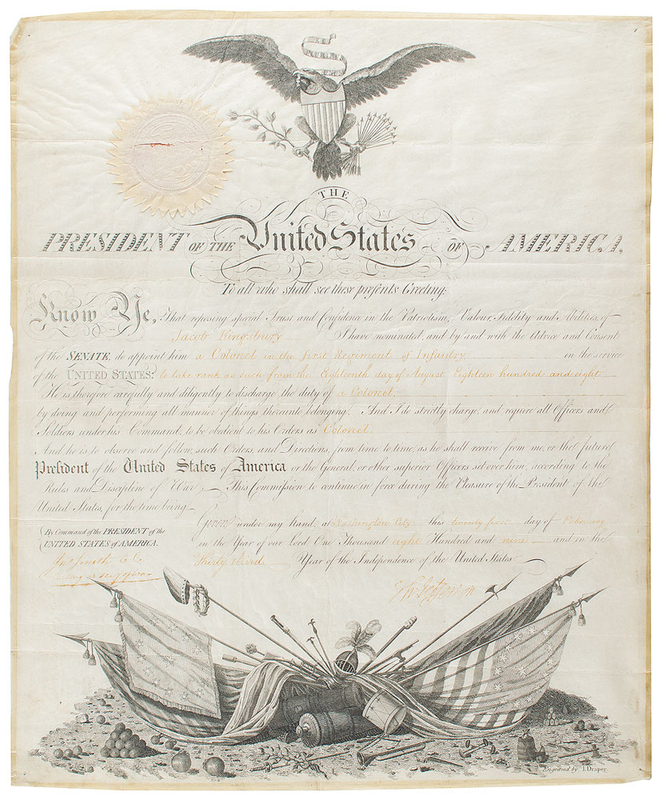 THE
PRESIDENT OF THE United States OF AMERICA,
To all who shall see these presents Greeting:
Know Ye, That reposing special Trust and Confidence in the Patriotism, Valour, Fidelity and Abilities of
Jacob Kingsbury I have nominated, and by and with the Advice and Consent
of the SENATE, do appoint him a Colonel in the first Regiment of Infantry in the service
of the UNITED STATES: to take rank as such from the Eighteenth day of August, Eighteen hundred and eight
He is therefore carefully and diligently to discharge the duty of a Colonel,
by doing and performing all manner of things thereunto belonging. And I do strictly charge and require all Officers and
Soldiers under his Command, to be obedient to his Orders as Colonel.
And he is to observe and follow such Orders, and Directions, from time to time, as he shall receive from me, or the future
President of the United States of America or the General or other superior Officers set over him, according to the
Rules and Discipline of War. This Commission to continue in force during the Pleasure of the President of the
United States, for the time being.
Given under my Hand, at Washington City this day of
in the Year of our Lord One Thousand eight Hundred and nine and in the
thirty third Year of the Independence of the United States
By Command of the PRESIDENT of the
UNITED STATES of AMERICA.
Th: Jefferson
Engraved by T. Draper